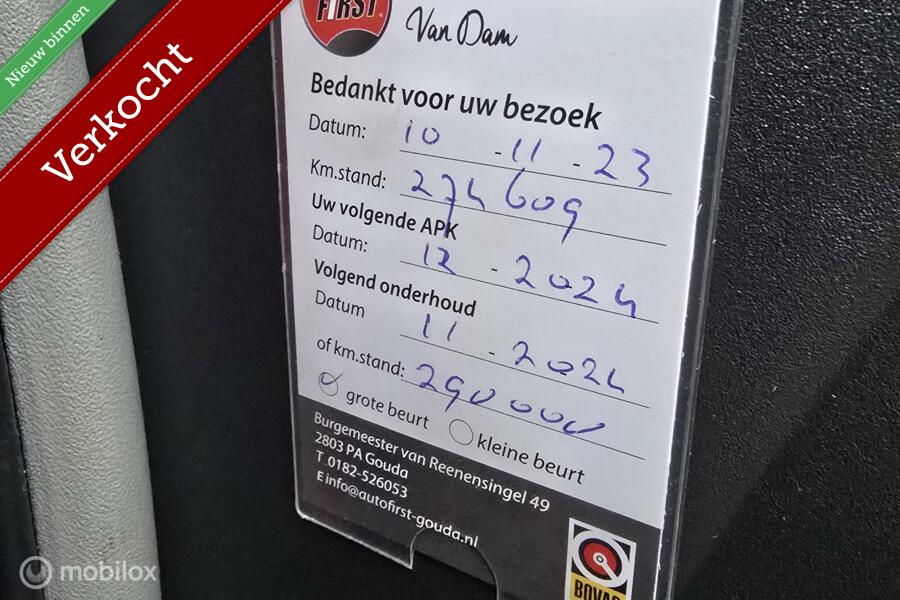 Nieuw binnen
Verkocht
FIRST
Van Dam
Bedankt voor uw bezoek
Datum: 10 - 11 - 23
Km.stand: 274 609
Uw volgende APK
Datum: 12 - 2024
Volgend onderhoud
Datum 11 - 2024
of km.stand: 290 000
grote beurt kleine beurt
Burgemeester van Reenensingel 49
2803 PA Gouda
T 0182-526053
E info@autofirst-gouda.nl
BOVAG
mobilox